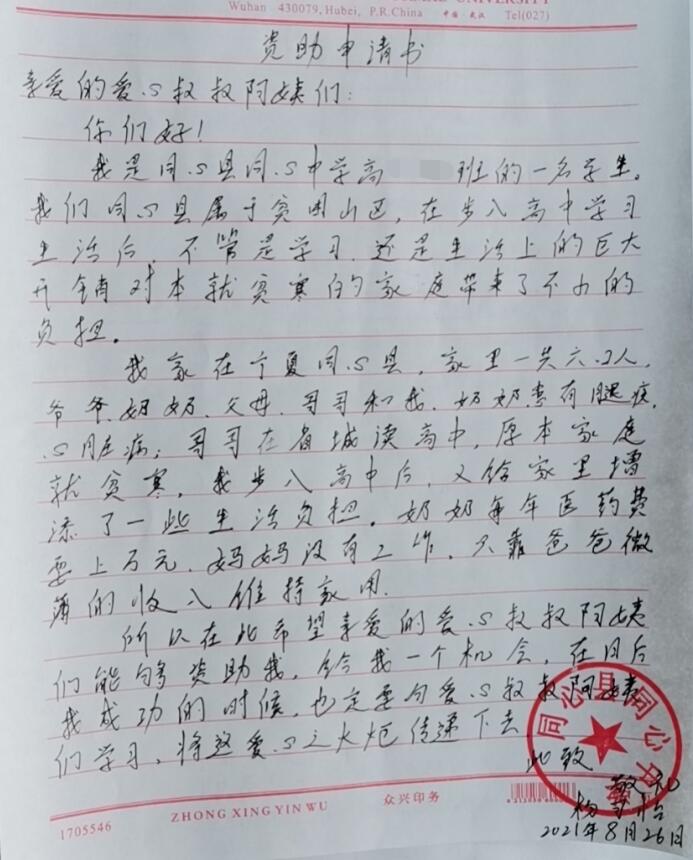 UNIVERSITY
Wuhan 430079, Hubei, P.R.China 中国·武汉 Tel(027)
资助申请书
亲爱的爱心叔叔阿姨们:
你们好!
我是同心县同心中学高 班的一名学生。
我们同心县属于贫困山区,在步入高中学习
生活后,不管是学习,还是生活上的巨大
开销对本就贫寒的家庭带来了不小的
负担。
我家在宁夏同心县,家里一共六口人,
爷爷、奶奶、父母、哥哥和我,奶奶患有腿疾,
心脏病;哥哥在省城读高中,原本家庭
就贫寒,我步入高中后,又给家里增
添了一些生活负担。奶奶每年医药费
要上万元,妈妈没有工作,只靠爸爸微
薄的收入维持家用.
所以在此希望亲爱的爱心叔叔阿姨
们能够资助我,给我一个机会,在日后
我成功的时候,也定要向爱心叔叔阿姨
们学习,将这爱心之火炬传递下去
此致
敬礼
杨
2021年8月26日
同心县同心中学
1705546 ZHONG XING YIN WU 众兴印务